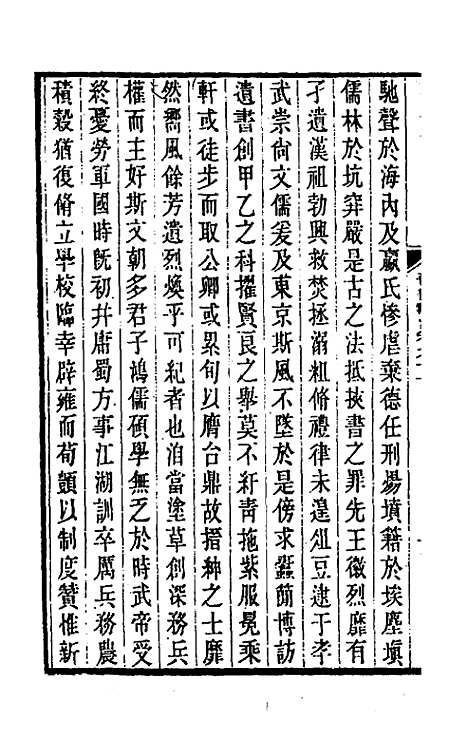 馳聲於海內及嬴氏慘虐棄德任刑煬墳籍於埃塵塡
儒林於坑穽嚴是古之法抵挾書之罪先王徽烈靡有
孑遺漢祖勃興救焚拯溺粗脩禮律未遑俎豆逮于孝
武崇尙文儒爰及東京斯風不墜於是傍求蠹𥳑博訪
遺書創甲乙之科擢賢良之舉莫不紆靑拖紫服冕乘
軒或徒步而取公卿或累旬以膺台鼎故搢紳之士靡
然嚮風餘芳遺烈煥乎可紀者也洎當塗草創深務兵
權而主好斯文朝多君子鴻儒碩學無乏於時武帝受
終憂勞軍國時旣初幷庸蜀方事江湖訓卒厲兵務農
積穀猶復脩立學校臨幸辟雍而荀顗以制度贊惟新